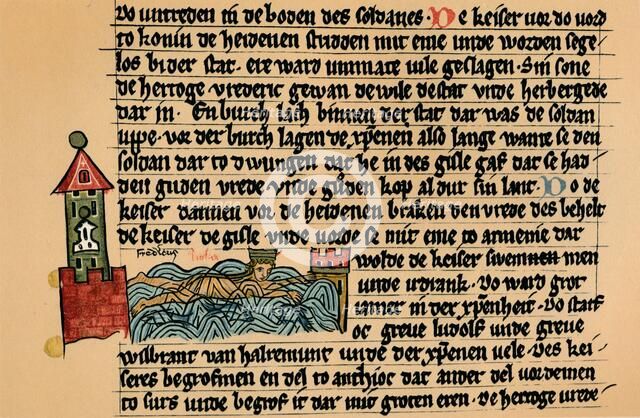 vo untreden in de boden des soldanes. De keiser vor do vord
to konin de heidenen stridden mit eme unde worden sege
los bi der stat. ere ward ummate vile geslagen. Sin sone
de hertoge vrederic gewan de wile de stat unde herbergede
dar in. En burch lach binnen der stat dar was de soldan
uppe. vor der burch lagen de xp̄enen also lange wante se den
soldan dar to dwungen dat he in des gisle gaf dat se had
den guden vrede unde guden kop al dur sin lant. Do de
keiser dannen vor de heidenen braken den vrede des behelt
de keiser de gisle unde vorde se mit eme to armenie dar
wolde de keiser swemmen
unde irdrank. Do ward grot
iamer in der xp̄enheit. Do starf
oc greve ludolf unde greve
wilbrant van halremunt unde der xp̄enen vele. Des kei
seres begrofmen en del to anthioc dat ander del vordemen
to surs unde begrof it dar mit groten eren. De hertoge vrede